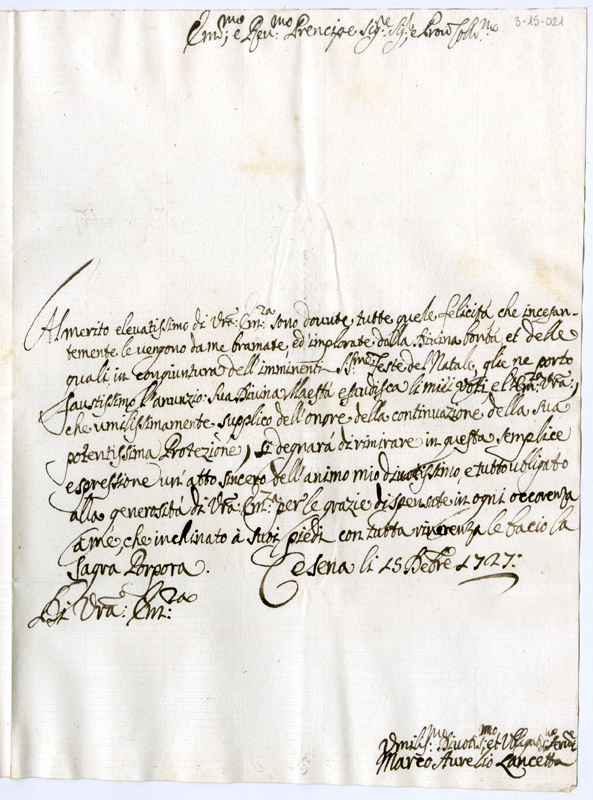 3-15-021
Em:mo e Rev:mo Prencipe Sig:re Sig:re e Pron Coll:mo
Al merito elevatissimo di Vra: Em:za sono dovute tutte quele felicità che incesan-
temente le vengono da me bramate, ed implorate dalla Divina bontà, et delle
quali, in congiuntura dell'imminenti SS:me Feste del Natale, glie ne porto
faustissimo l'anunzio: Sua Divina Maestà esaudisca li miei voti, e l'Em:za Vra:,
che umilissimamente supplico dell'onore della continuazione della sua
potentissima Protezione, si degnarà di rimirare in questa semplice
espressione un'atto sincero dell'animo mio divotissimo, e tutto obligato
alla generosità di Vra: Em:za per le grazie dispensate in ogni occorenza
a me, che inclinato à suoi piedi con tutta riverenza le bacio la
Sagra Porpora.
Cesena li 15 Xbre 1727:
Di Vra: Em:za
Vmilis:mo Divotis:mo et Obligatis:mo Serv:e
Marco Aurelio Lancetta